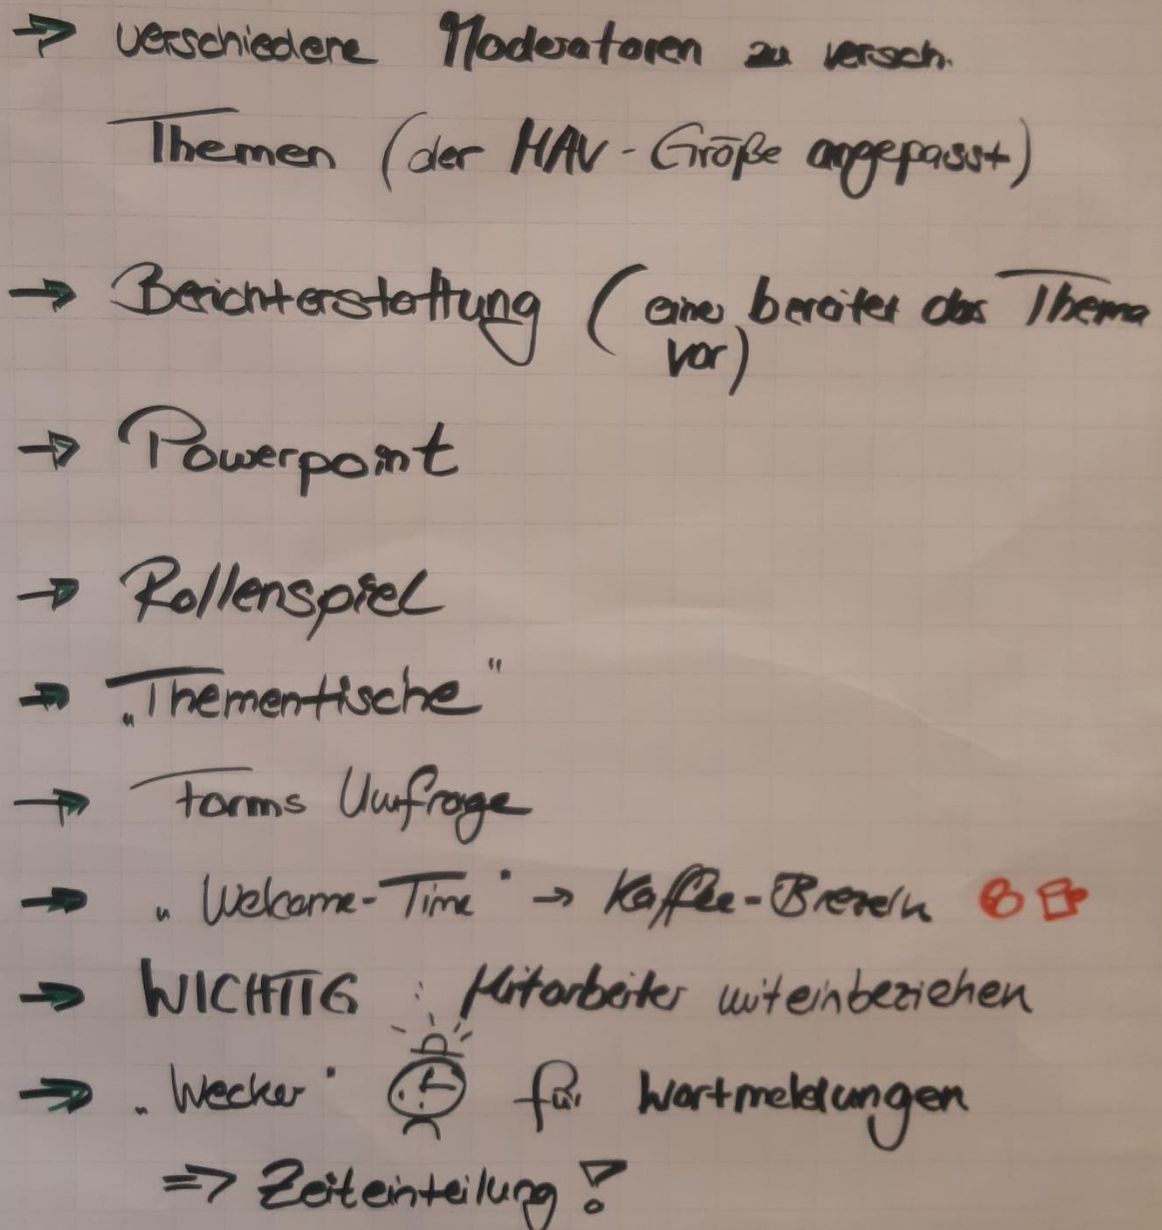 → verschiedene Moderatoren zu versch.
Themen (der MAV-Größe angepasst)
→ Berichterstattung (einer bereitet das Thema
vor)
→ Powerpoint
→ Rollenspiel
→ „Thementische“
→ Forms Umfrage
→ „Welcome-Time“ → Kaffee-Brezeln
→ WICHTIG : Mitarbeiter miteinbeziehen
→ „Wecker“ für Wortmeldungen
⇒ Zeiteinteilung!